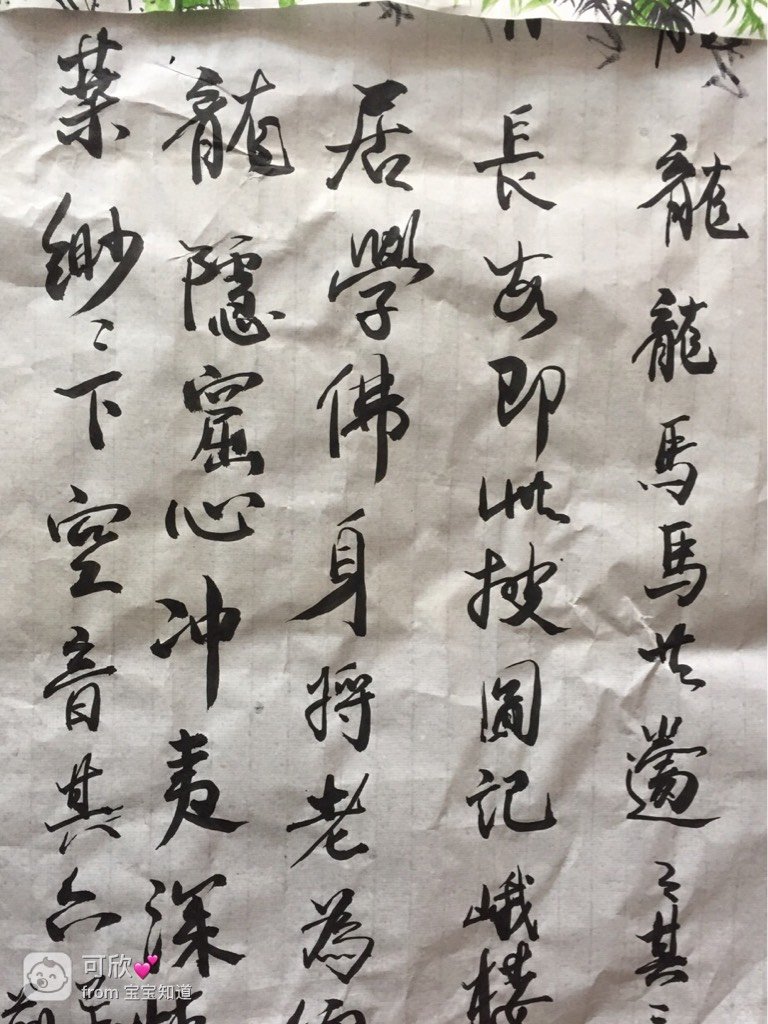 龍龍馬馬共邊其
長即此披圖記峨樓
居學佛身將老為
龍隱窟心冲夷深
葉緲々下空音其六
可欣💕
from 宝宝知道